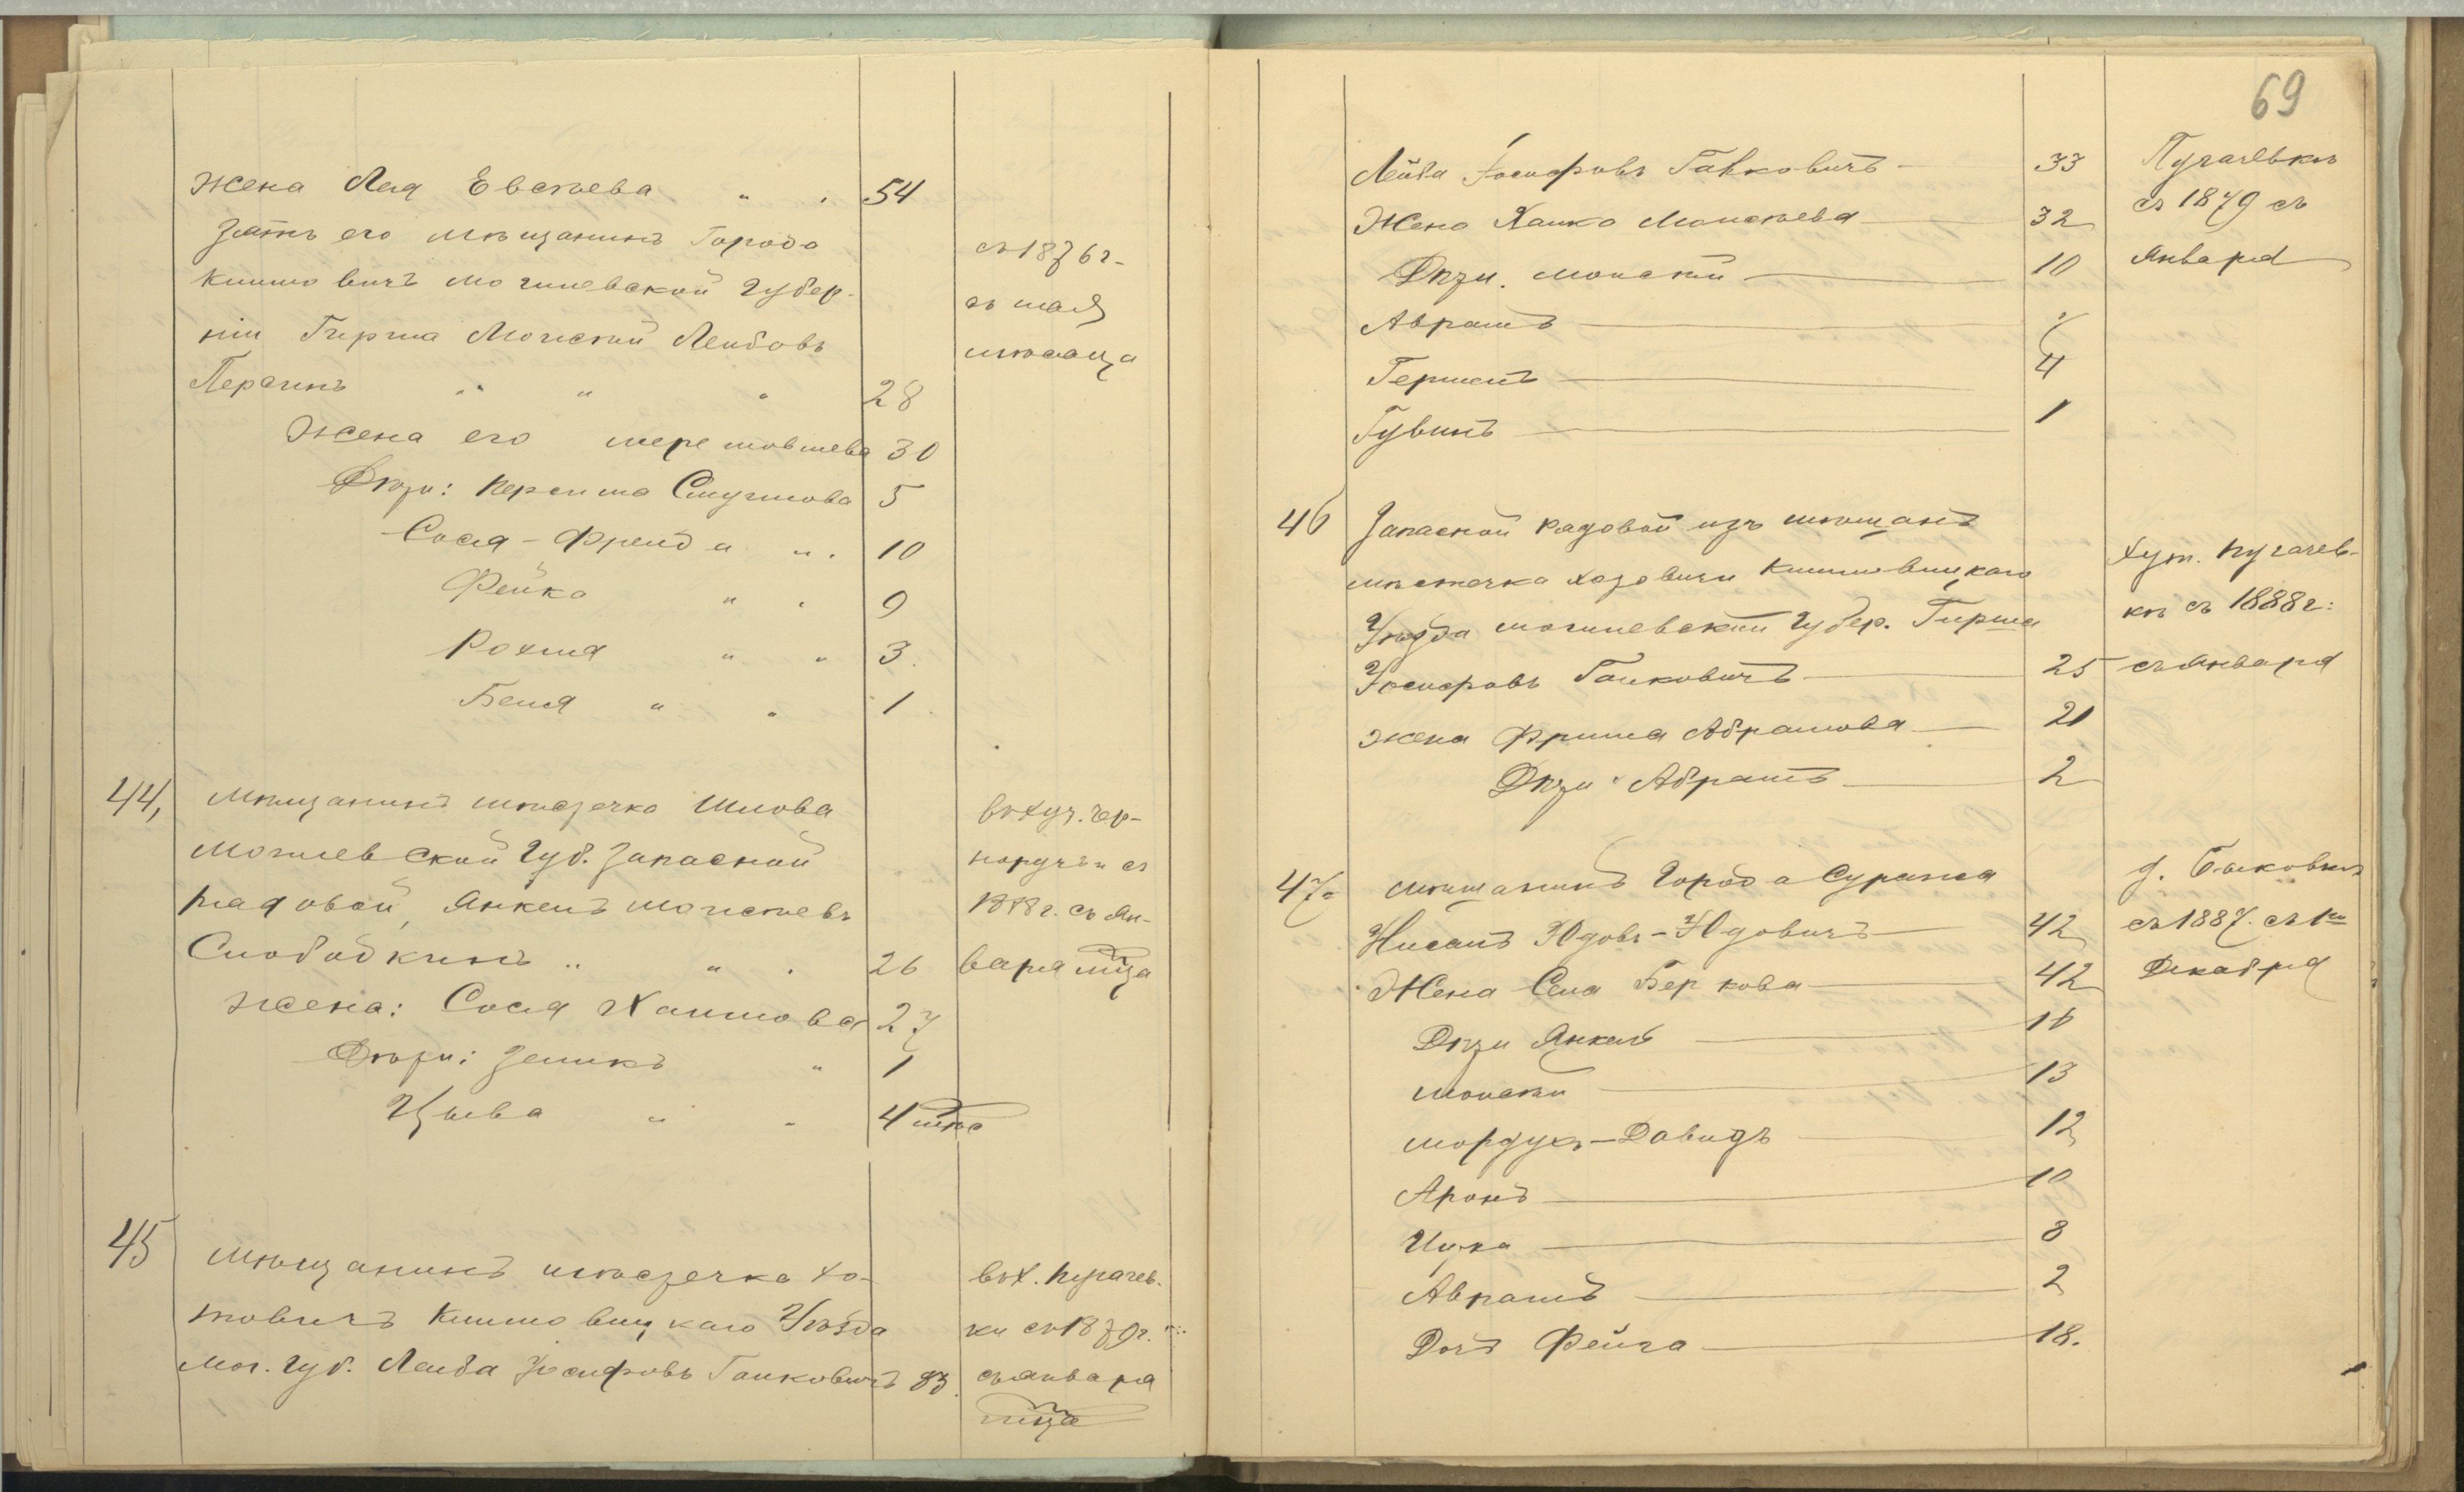 Жена Лея Евсѣева " . 54
Зять его мѣщанинъ Города
Климовичъ могилевской губер-
ніи Гирша Моисей Лейбовъ
Персинъ " " " 28
съ 1876 г-
съ мая
мѣсяца
Жена его 30
Дѣти: 5
Сося-Фрейда " . 10
Фейка " . 9
Рохля " " 3.
Беня " " 1
44, Мѣщанинъ мѣстечка Шклова
Могилевской Губ. Запасной
рядовой, Янкель Моисеевъ
Слободкинъ " " . 26
Жена: Сося Хаимова 27
Дѣти: Зеликъ " 1
Цыва " " 4 мѣс
въ хут. Чер-
норучьи съ
1888 г. съ Ян-
варя мца
45 Мѣщанинъ мѣстечка Хо-
товичъ Климовицкаго Уѣзда
Мог. Губ. Лейба Іосифовъ Ганковичъ 33.
въ х. Пугачев-
ки съ 1879 г.
съ января
мца
69
Лейба Іосифовъ Ганковичъ 33
Жена Хаика Моисѣева 32
Дѣти. Моисей 10
Абрамъ
Гершенъ 4
Гувинъ 1
Пугачевкѣ
съ 1879 съ
Января
46 Запасной рядовой изъ мѣщанъ
мѣстечка Хотовичи Климовицкаго
Уѣзда могилевской Губер. Гирша
Іосифовъ Ганковичъ 25
жена Фрима Абрамова 21
Дѣти Абрамъ 2
Хут. Пугачев-
кѣ съ 1888 г:
съ Января
47 Мѣщанинъ Города Суража
Нисанъ Юдовъ-Юдовичъ 42
Жена Сеиа Беркова 42
Дѣти Янкель 16
Моисей 13
Мордухъ-Давидъ 12
Аронъ 10
Ицка 8
Абрамъ 2
Дочь Фейга 18.
д. Быковкѣ
съ 1887. съ 1го
Декабря